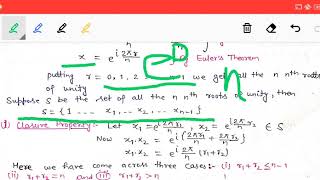 x = e^{i 2πr/n} By Euler's Theorem
putting r = 0, 1, 2 n-1 we get all the n nth roots
of unity
Suppose S be the set of all the n nth roots of unity, then
S = {1 .... x₁, .... x₂, ... xₙ₋₁}
(i) Closure Property:- Let x₁ = e^{i 2πr₁/n}, x₂ = e^{i 2πr₂/n} ∈ S
Now x₁·x₂ = e^{i(2πr₁/n + 2πr₂/n)}
x₁·x₂ = e^{i 2π/n (r₁+r₂)}
Here we have come across three cases:- (i) r₁+r₂ ≤ n-1
(ii) r₁+r₂ = n and (iii) r₁+r₂ > n
n